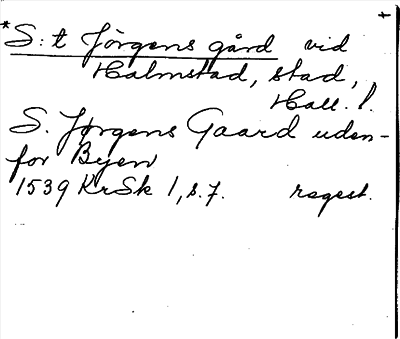 *S:t Jörgens gård vid +
Halmstad, stad,
Hall. l.
S. Jørgens Gaard uden-
for Byen
1539 KrSk 1, s. 7. regest.